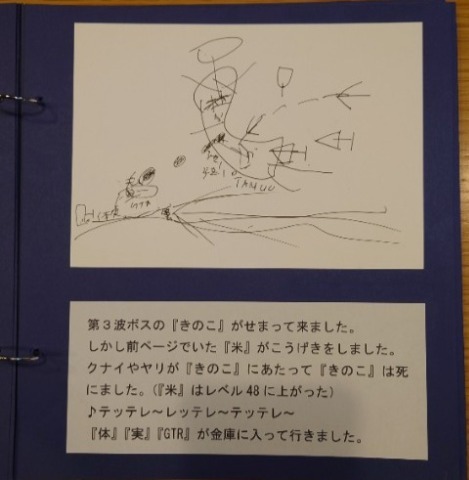 TAMUU
第3波ボスの『きのこ』がせまって来ました。
しかし前ページでいた『米』がこうげきをしました。
クナイやヤリが『きのこ』にあたって『きのこ』は死
にました。(『米』はレベル48に上がった)
♪テッテレ～レッテレ～テッテレ～
『体』『実』『GTR』が金庫に入って行きました。